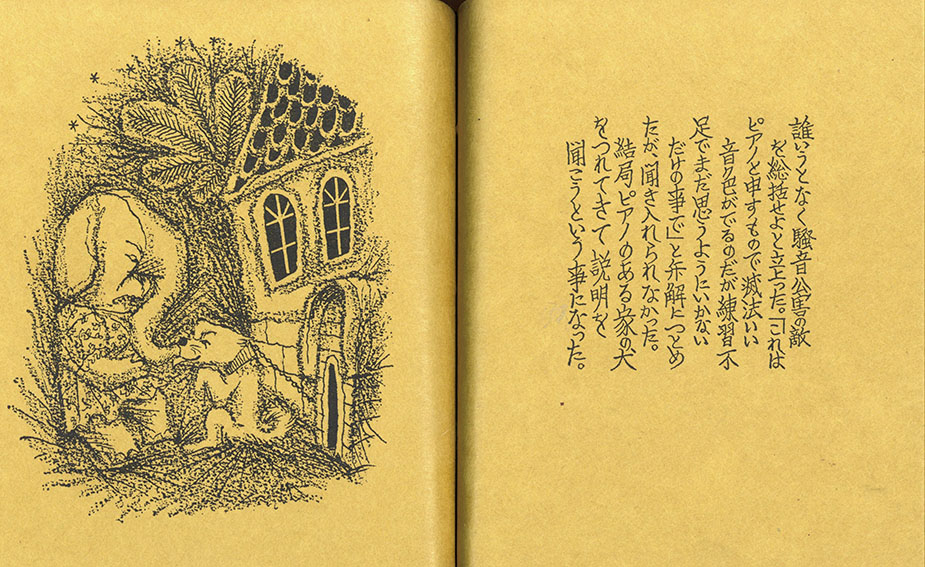 誰いうとなく騒音公害の敵
を総括せよと立上った。「これは
ピアノと申すもので滅法いい
音色がでるのだが練習不
足でまだ思うようにいかない
だけの事で」と弁解につとめ
たが、聞き入れられなかった。
結局ピアノのある家の犬
をつれてきて説明を
聞こうという事になった。